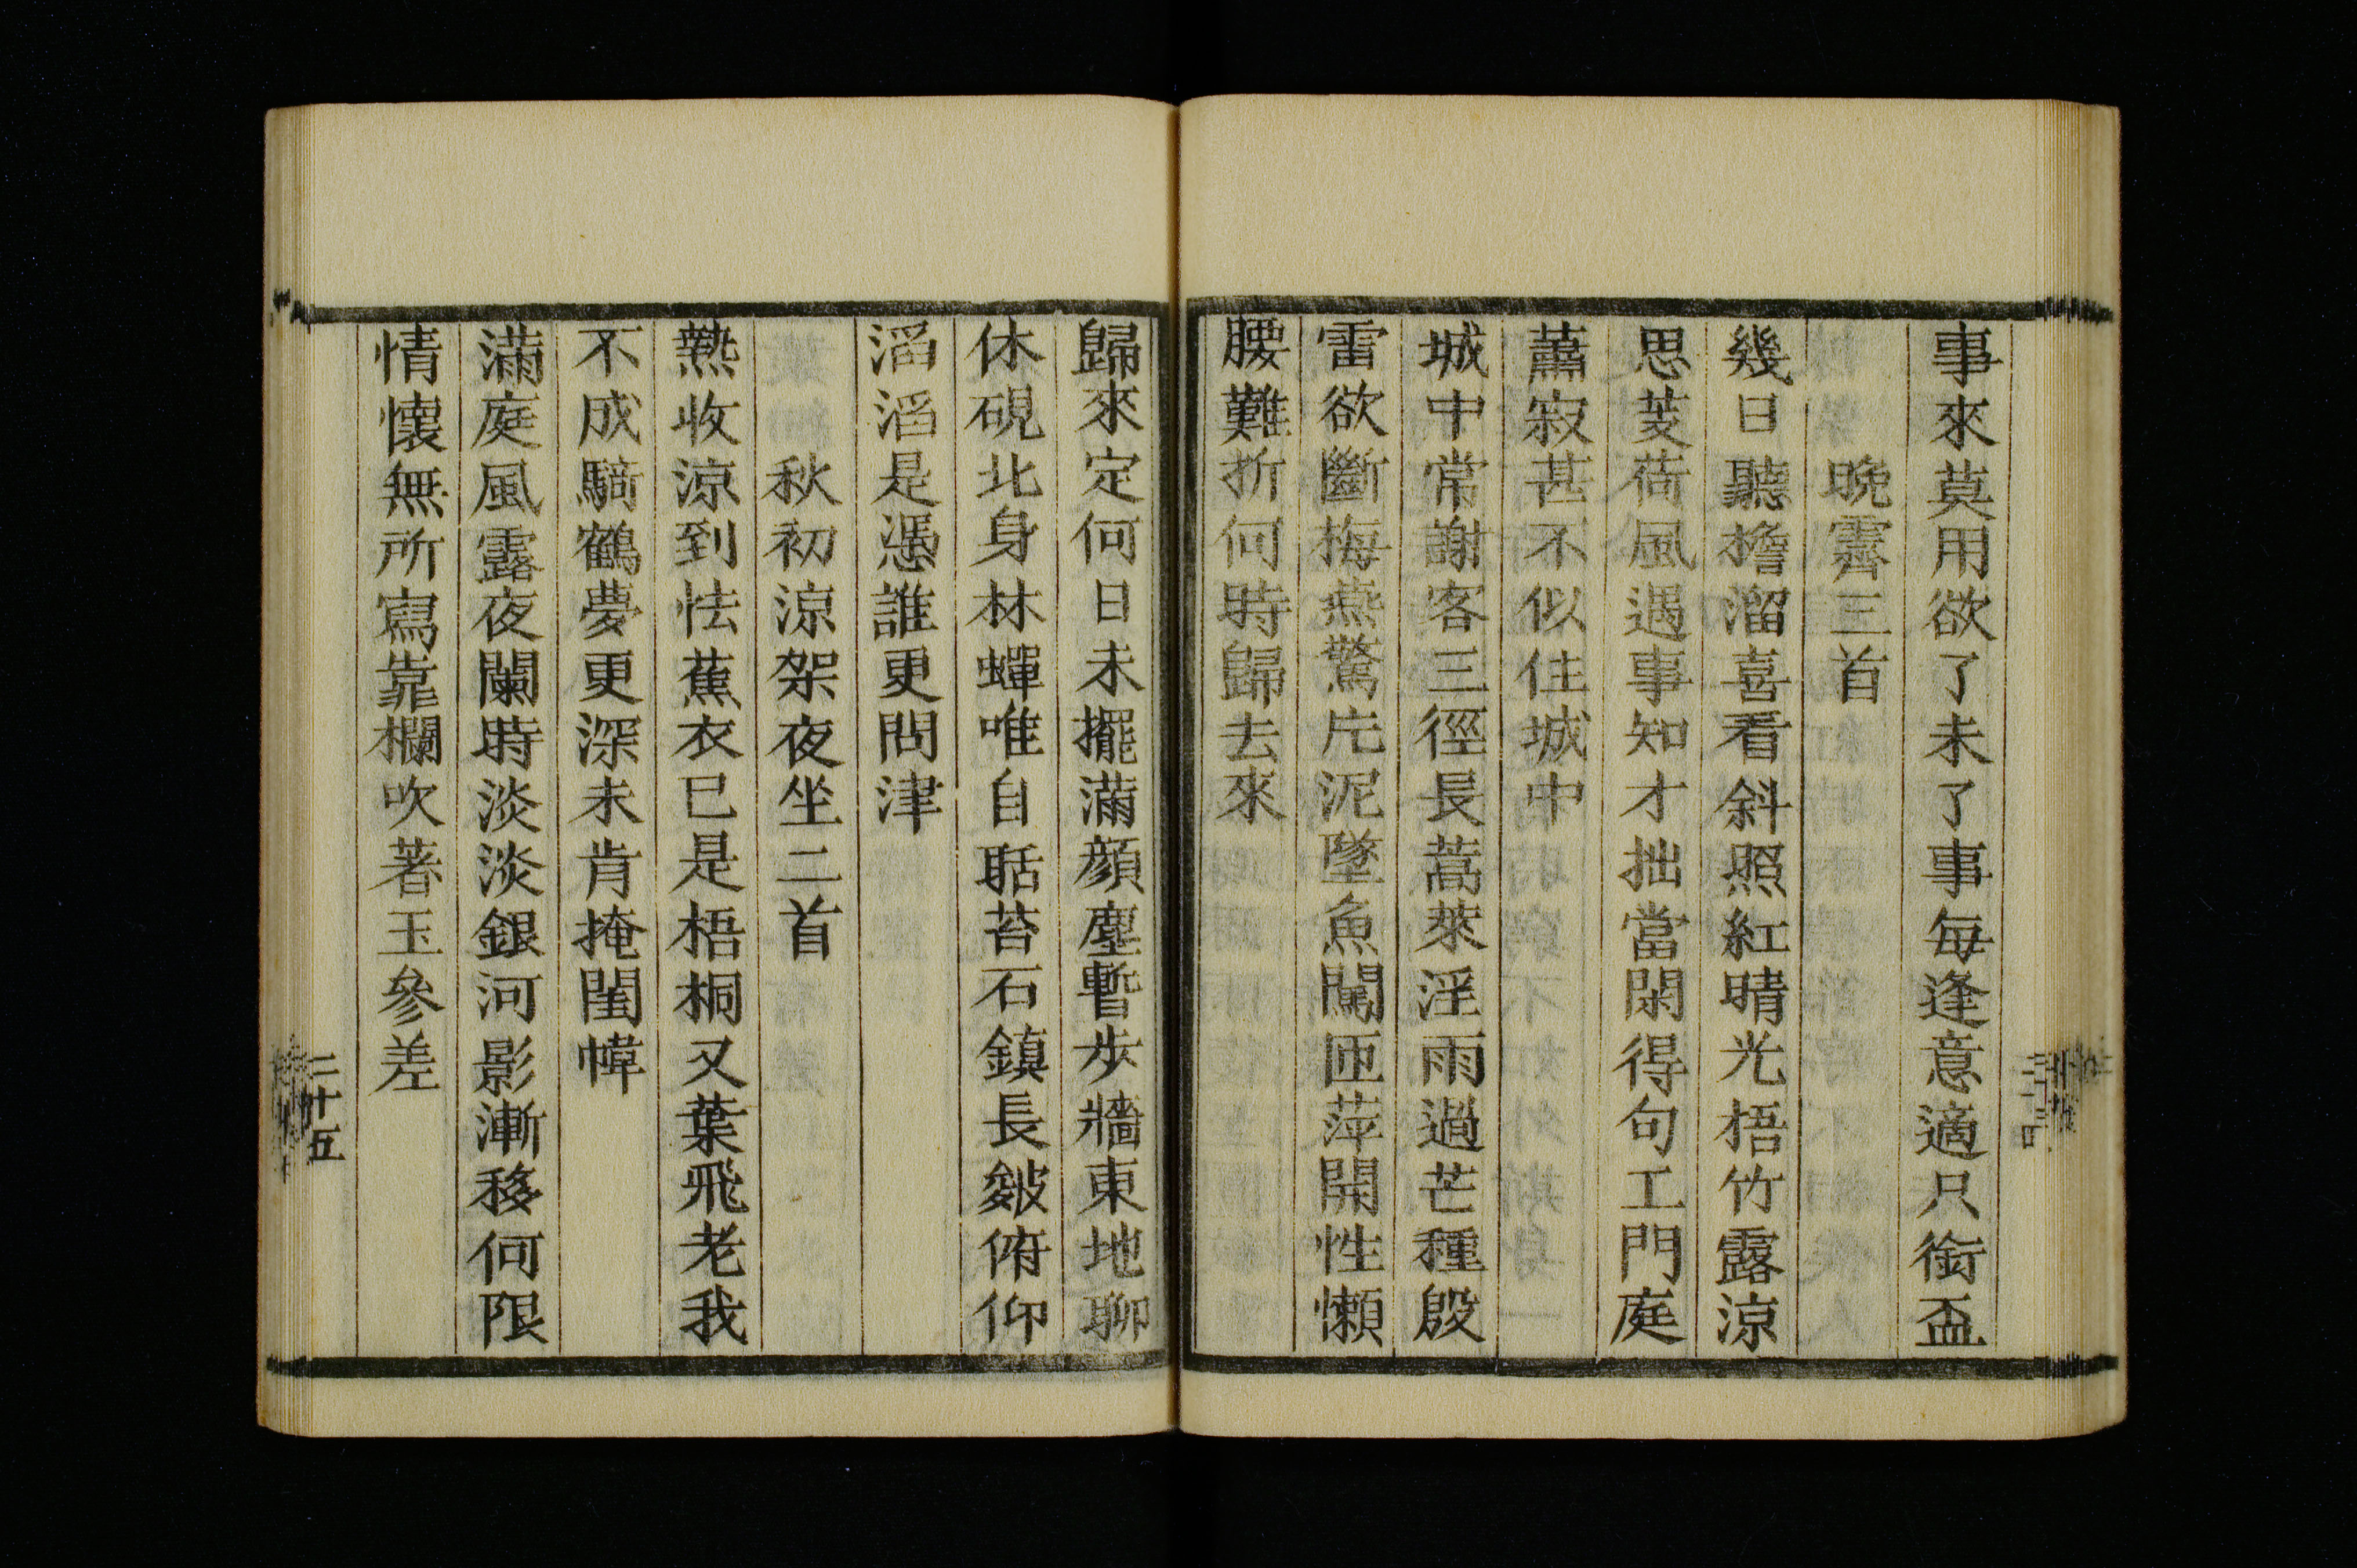 事來莫用欲了未了事每逢意適只銜盃
晩霽三首
幾日聽檐溜喜看斜照紅晴光梧竹露涼
思芰荷風遇事知才拙當閑得句工門庭
蕭寂甚不似住城中
城中常謝客三徑長蒿萊淫雨過芒種殷
雷欲斷梅燕驚片泥墜魚闖匝萍開性懶
腰難折何時歸去來
歸來定何日未擺滿顔塵暫步牆東地聊
休硯北身林蟬唯自聒苔石鎮長皴俯仰
滔滔是憑誰更問津
秋初涼架夜坐二首
熱收涼到怯蕉衣已是梧桐又葉飛老我
不成騎鶴夢更深未肯掩閨幃
滿庭風露夜闌時淡淡銀河影漸移何限
情懷無所寫靠欄吹著玉參差
二十五